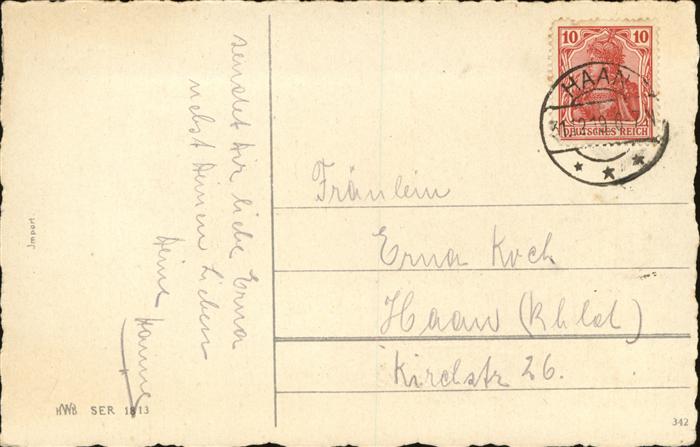 sendet dir liebe Erna
nebst Deinen Lieben
Deine Hanne
Import
HWB SER 1813
10 10
DEUTSCHES REICH
HAAN
Fräulein
Erna Koch
Haan (Rhld)
Kirchstr 26.
342